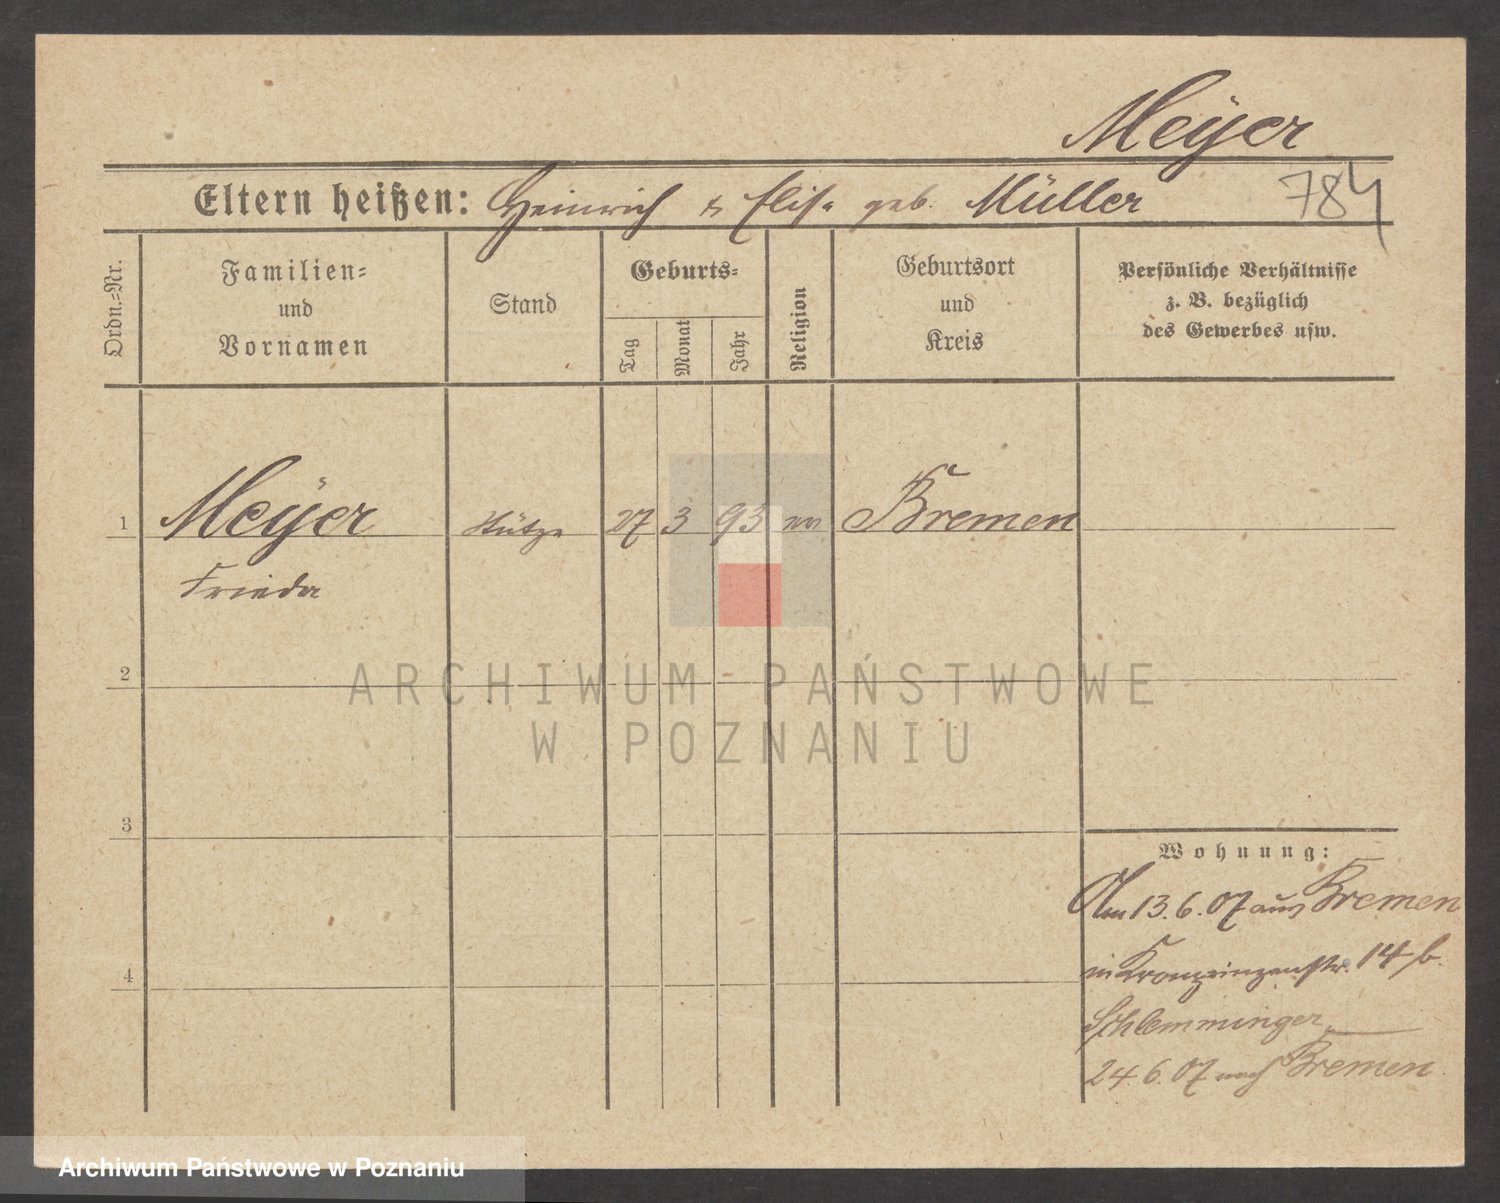 Meÿer
Eltern heißen: Heinrich & Elise geb. Müller 784
Ordn.=Nr.
Familien=
und
Vornamen
Stand
Geburts=
Tag
Monat
Jahr
Religion
Geburtsort
und
Kreis
Persönliche Verhältnisse
z. B. bezüglich
des Gewerbes usw.
1 Meÿer Stütze 27 3 93 Bremen
Frieda
2
3
4
Wohnung:
Am 13.6.07 aus Bremen
in Kronprinzenstr. 14 b.
Schlemminger
24.6.07 nach Bremen.
ARCHIWUM PAŃSTWOWE
W POZNANIU
Archiwum Państwowe w Poznaniu